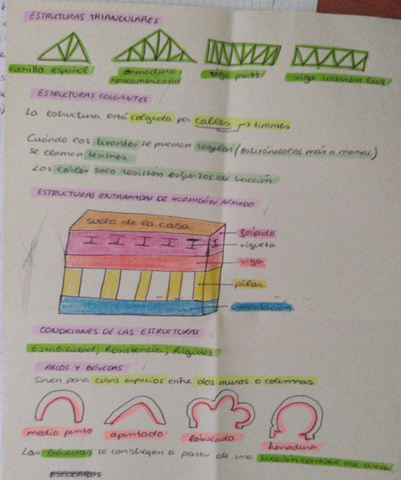 ESTRUCTURAS TRIANGULARES
cuchilla española
armadura norteamericana
viga pratt
viga warren
ESTRUCTURAS COLGANTES
La estructura está colgada por cables y tirantes
Cuando los tirantes se pueden regular (estirándolos más o menos)
se llaman tensores
Los cables solo resisten esfuerzos de tracción
ESTRUCTURAS ENTRAMADAS DE HORMIGÓN ARMADO
suelo de la casa
forjado
vigueta
viga
pilar
cimentación
CONDICIONES DE LAS ESTRUCTURAS
Estabilidad, Resistencia, Rigidez
ARCOS Y BÓVEDAS
Sirven para cubrir espacios entre dos muros o columnas
medio punto
apuntado
lobulado
herradura
Las bóvedas se construyen a partir de una sucesión continua de arcos
ESFUERZOS